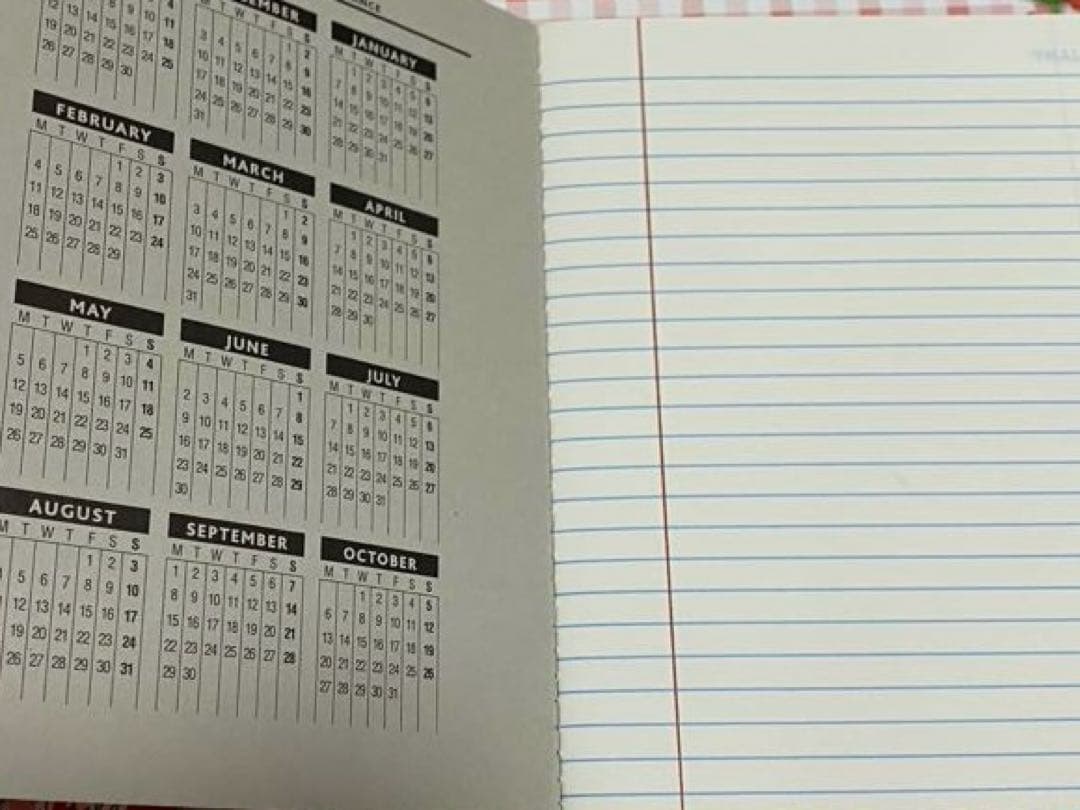 8 9 10 11
12 13 14 15 16 17 18
19 20 21 22 23 24 25
26 27 28 29 30
EMBER
M T W T F S S
1 2
3 4 5 6 7 8 9
10 11 12 13 14 15 16
17 18 19 20 21 22 23
24 25 26 27 28 29 30
31
JANUARY
M T W T F S S
1 2 3 4 5 6
7 8 9 10 11 12 13
14 15 16 17 18 19 20
21 22 23 24 25 26 27
28 29 30 31
FEBRUARY
M T W T F S S
1 2 3
4 5 6 7 8 9 10
11 12 13 14 15 16 17
18 19 20 21 22 23 24
25 26 27 28 29
MARCH
M T W T F S S
1 2
3 4 5 6 7 8 9
10 11 12 13 14 15 16
17 18 19 20 21 22 23
24 25 26 27 28 29 30
31
APRIL
M T W T F S S
1 2 3 4 5 6
7 8 9 10 11 12 13
14 15 16 17 18 19 20
21 22 23 24 25 26 27
28 29 30
MAY
M T W T F S S
1 2 3 4
5 6 7 8 9 10 11
12 13 14 15 16 17 18
19 20 21 22 23 24 25
26 27 28 29 30 31
JUNE
M T W T F S S
1
2 3 4 5 6 7 8
9 10 11 12 13 14 15
16 17 18 19 20 21 22
23 24 25 26 27 28 29
30
JULY
M T W T F S S
1 2 3 4 5 6
7 8 9 10 11 12 13
14 15 16 17 18 19 20
21 22 23 24 25 26 27
28 29 30 31
AUGUST
M T W T F S S
1 2 3
5 6 7 8 9 10
12 13 14 15 16 17
19 20 21 22 23 24
26 27 28 29 30 31
SEPTEMBER
M T W T F S S
1 2 3 4 5 6 7
8 9 10 11 12 13 14
15 16 17 18 19 20 21
22 23 24 25 26 27 28
29 30
OCTOBER
M T W T F S S
1 2 3 4 5
6 7 8 9 10 11 12
13 14 15 16 17 18 19
20 21 22 23 24 25 26
27 28 29 30 31